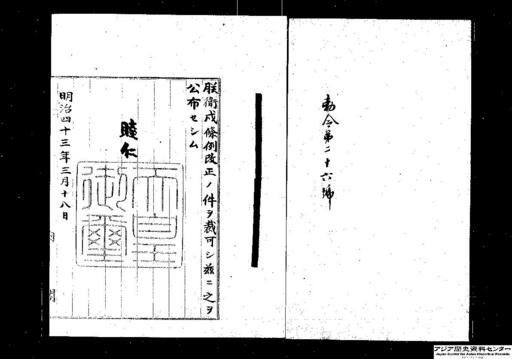 勅令第二十六號
朕衛戍條例改正ノ件ヲ裁可シ茲ニ之ヲ
公布セシム
睦仁
天皇
御璽
明治四十三年三月十八日
内閣
アジア歴史資料センター
Japan Center for Asian Historical Records